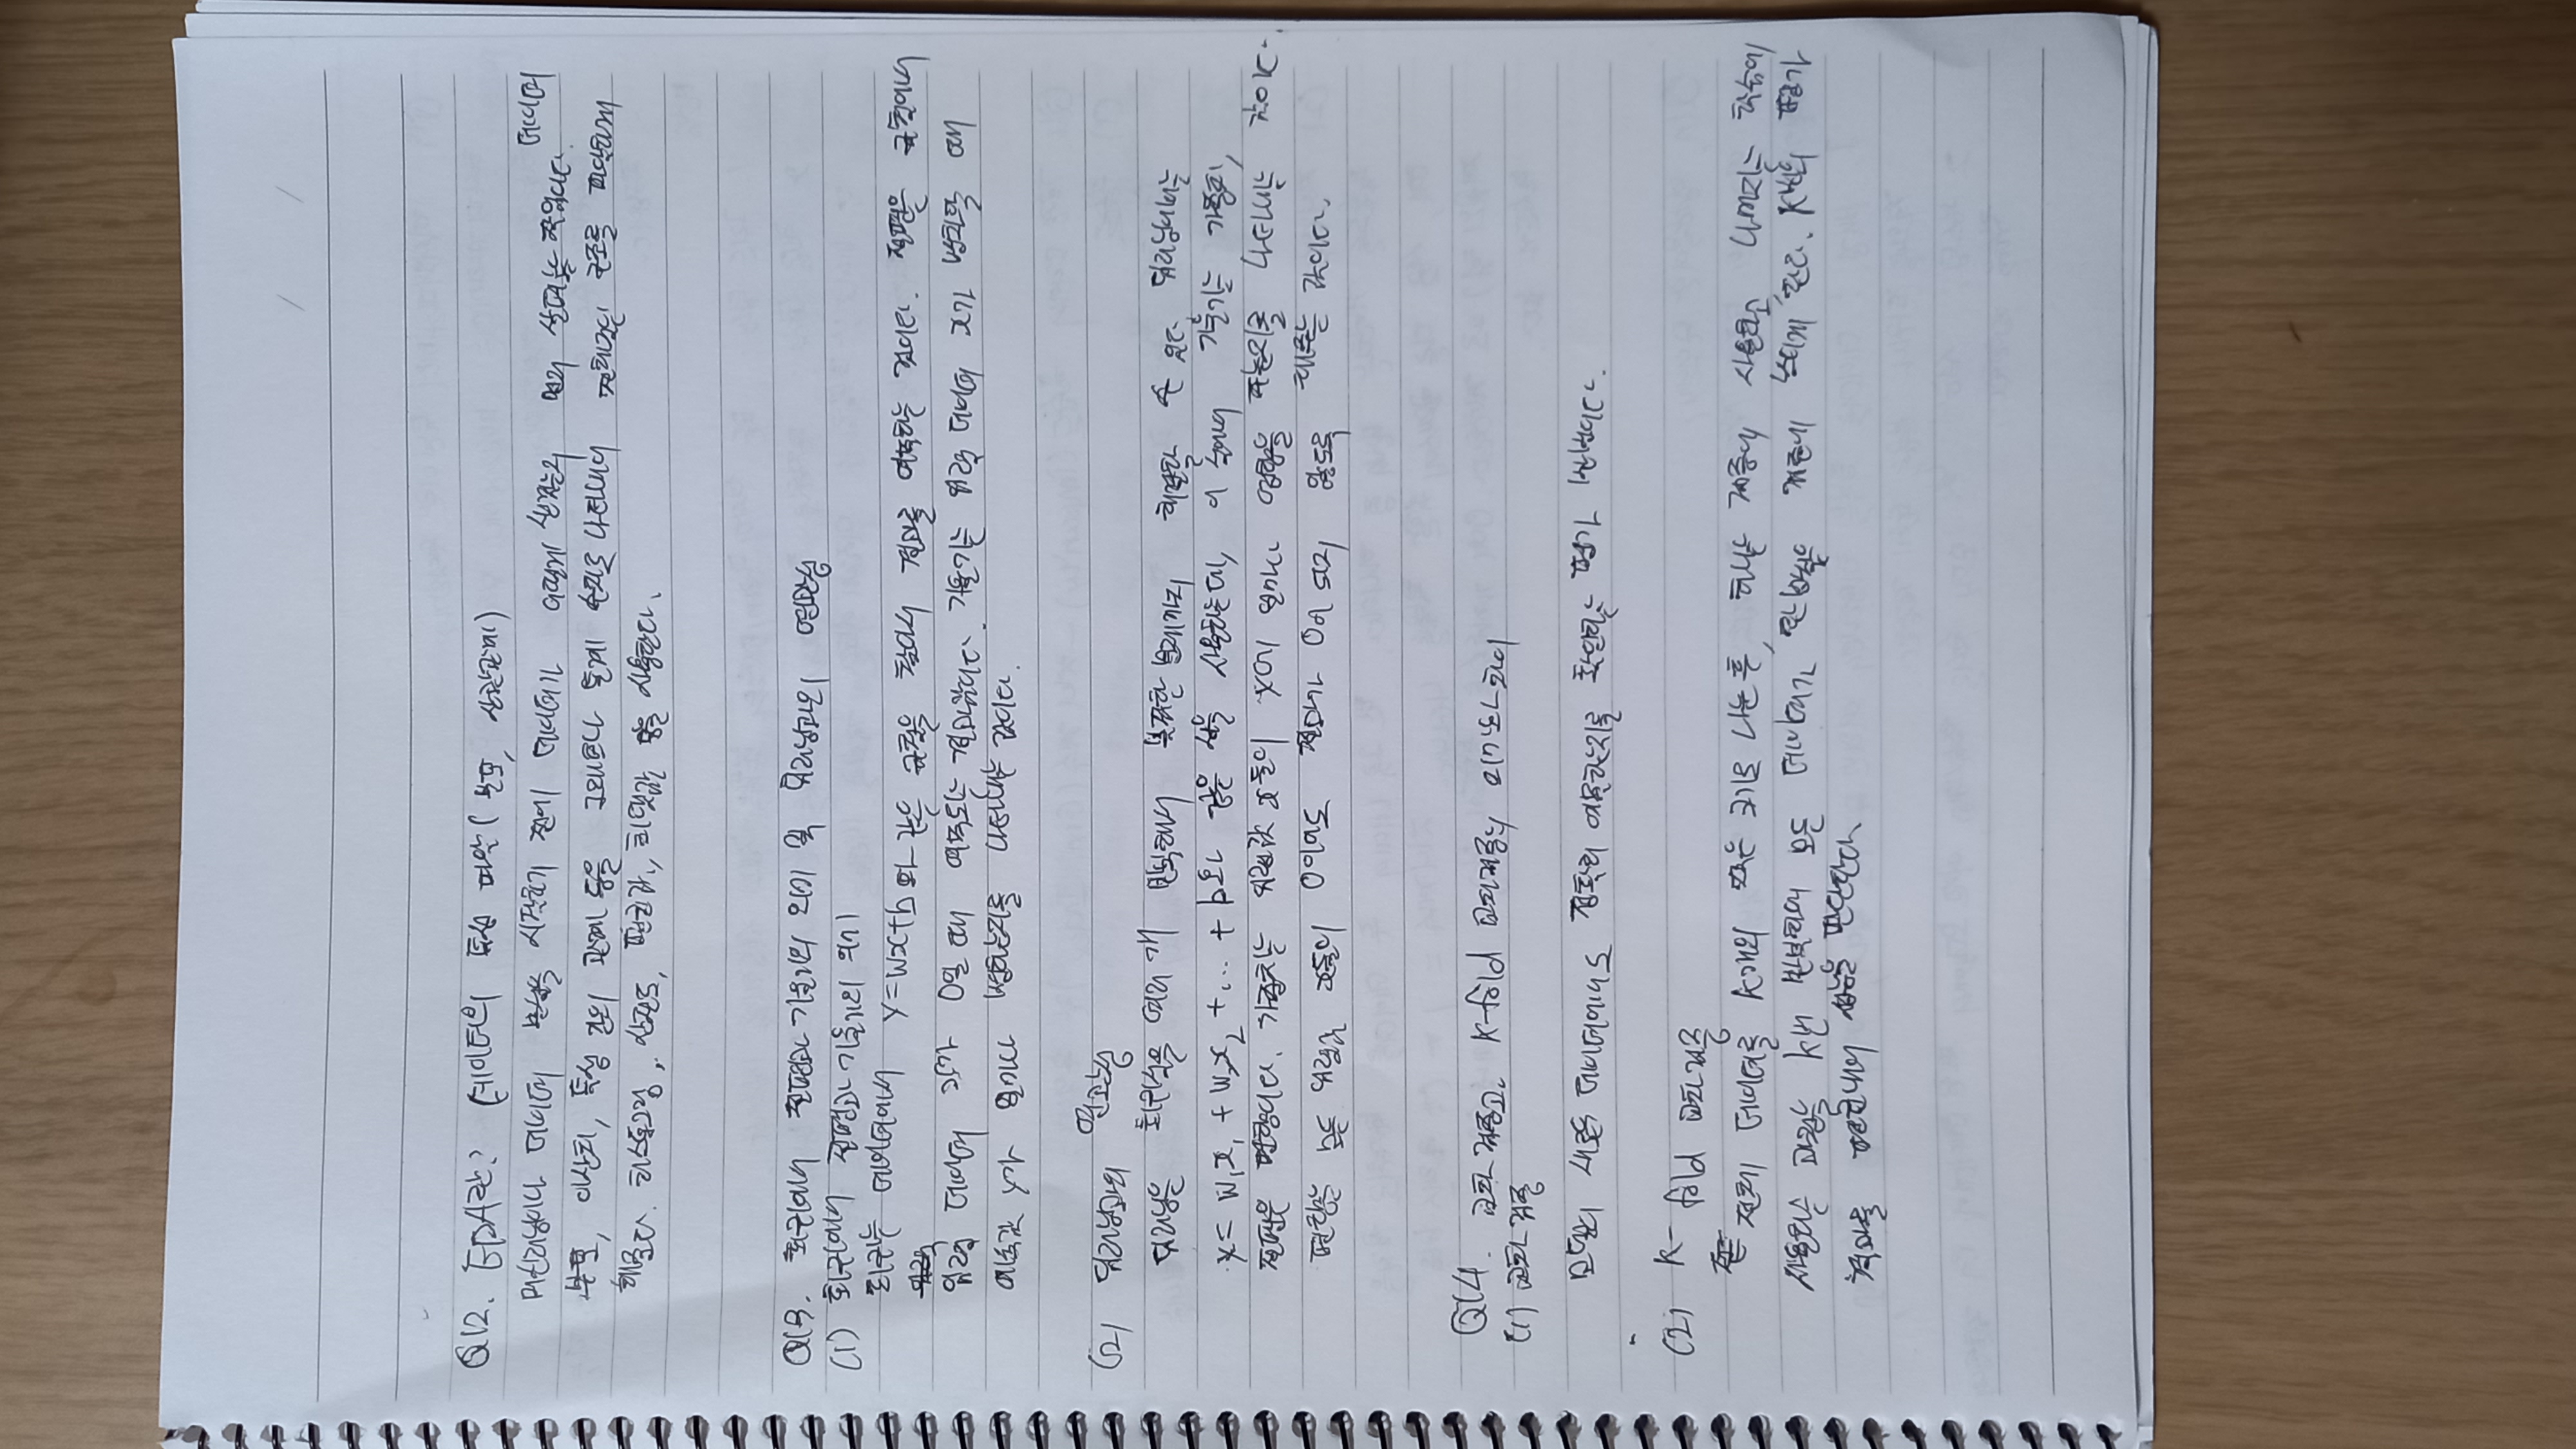 Q12. EDA란? (데이터의 특성 파악 (분포, 상관관계)
머신러닝이나 데이터 분석을 시작하기 전에 데이터가 어떻게 생겼는지 먼저 살펴보는 작업이다. 데이터
분포, 이상치, 특성 간의 관계 등을 그래프나 통계 수치로 나타내어 전체적인 구조를 파악하게
해준다. 히스토그램, 산점도, 평균값, 최댓값 등을 사용한다.
Q13. 회귀에서 절편과 기울기의 의미 및 딥러닝과의 연관성
(1) 회귀에서 절편과 기울기의 의미
회귀는 데이터에서 y=wx+b와 같은 규칙을 찾아서 결과를 예측하는 것이다. 절편은 규칙에서
입력 데이터 x가 0일 때 예측되는 결과값이다. 기울기는 입력 데이터 x가 변화할 때
예측값 y가 얼마나 변하는지를 나타내는 값이다.
(2) 딥러닝과의 연관성
딥러닝은 회귀식을 여러 개 반복해서 복잡한 문제까지 해결할 수 있다. 딥러닝에서는
y = w₁x₁ + w₂x₂ + ... + b와 같은 식을 사용하는데, 이 식에서 기울기는 가중치,
절편은 편향이다. 가중치는 입력값 x들이 y에 얼마나 영향을 주는지를 나타내는 값이다.
편향은 모든 입력값 x들이 0이어도 결과가 0이 되지 않도록 해주는 값이다.
Q14. 교차 검증과 K-fold 교차검증의 의미와 차이
(1) 교차 검증
모델이 새로운 데이터에서도 정확히 예측하는지를 확인하는 평가 방법이다.
(2) K-fold 교차검증
전체 데이터를 K개의 작은 크기로 나눈 후, 하나는 검증에 사용하고, 나머지는 학습에
사용하는 과정을 K번 반복하여 모든 데이터가 한 번씩은 검증에 쓰이게 한다. K번의 평가
결과를 평균내어 성능을 판단한다.